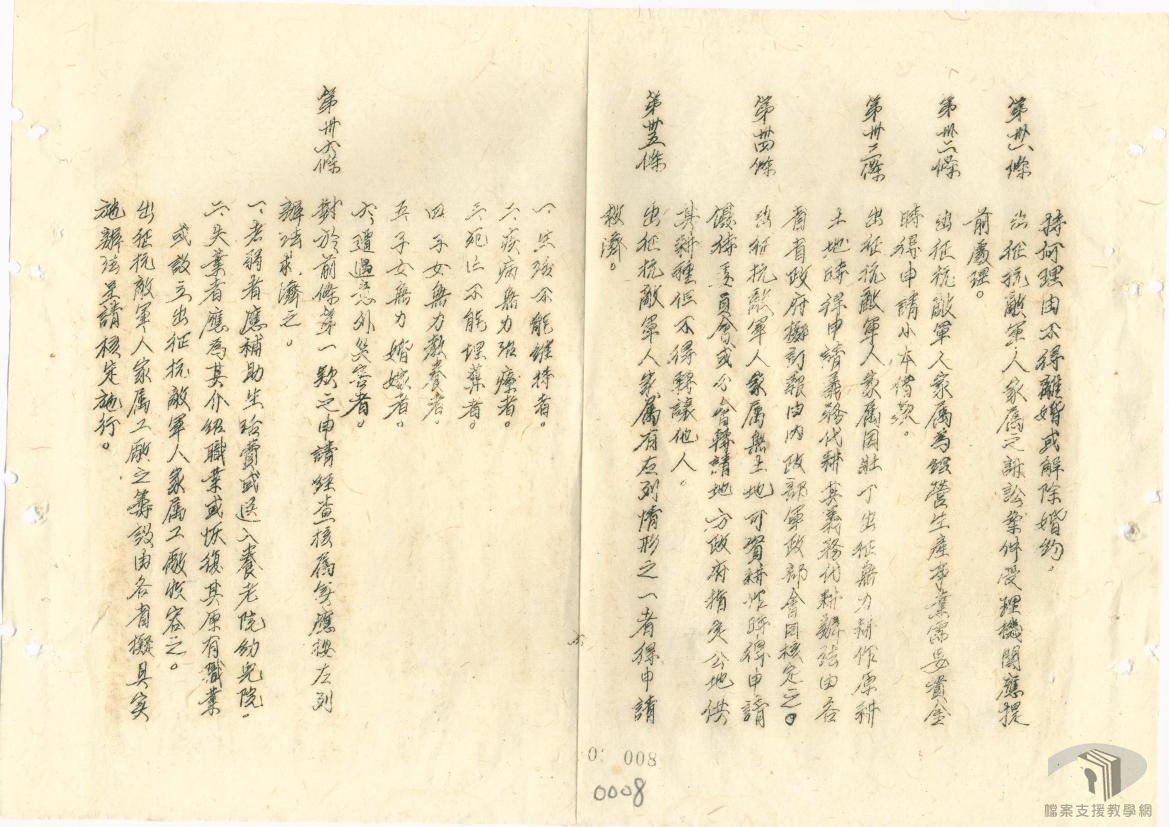 持何理由不得離婚或解除婚約。
第卅一條
出征抗敵軍人家屬之訴訟案件受理機關應提
前處理。
第卅二條
出征抗敵軍人家屬為經營生產事業需要資金
時得申請小本借款。
第卅三條
出征抗敵軍人家屬因壯丁出征無力耕作原耕
土地時得申請義務代耕其義務代耕辦法由各
省省政府擬訂報由內政部軍政部會同核定之。
第卅四條
出征抗敵軍人家屬無土地可資耕作時得申請
優待委員會或分會轉請地方政府指定公地供
其耕種但不得轉讓他人。
第卅五條
出征抗敵軍人家屬有左列情形之一者得申請
救濟。
一、生活不能維持者。
二、疾病無力治療者。
三、死亡不能埋葬者。
四、子女無力教養者。
五、子女無力婚嫁者。
六、遭遇意外災害者。
第卅六條
對於前條第一款之申請經查核屬實應按左列
辦法救濟之。
一、老弱者應補助生活費或送入養老院幼兒院。
二、失業者應為其介紹職業或恢復其原有職業
或設立出征抗敵軍人家屬工廠收容之。
出征抗敵軍人家屬工廠之籌設由各省擬具實
施辦法呈請核定施行。
008
0008
檔案支援教學網